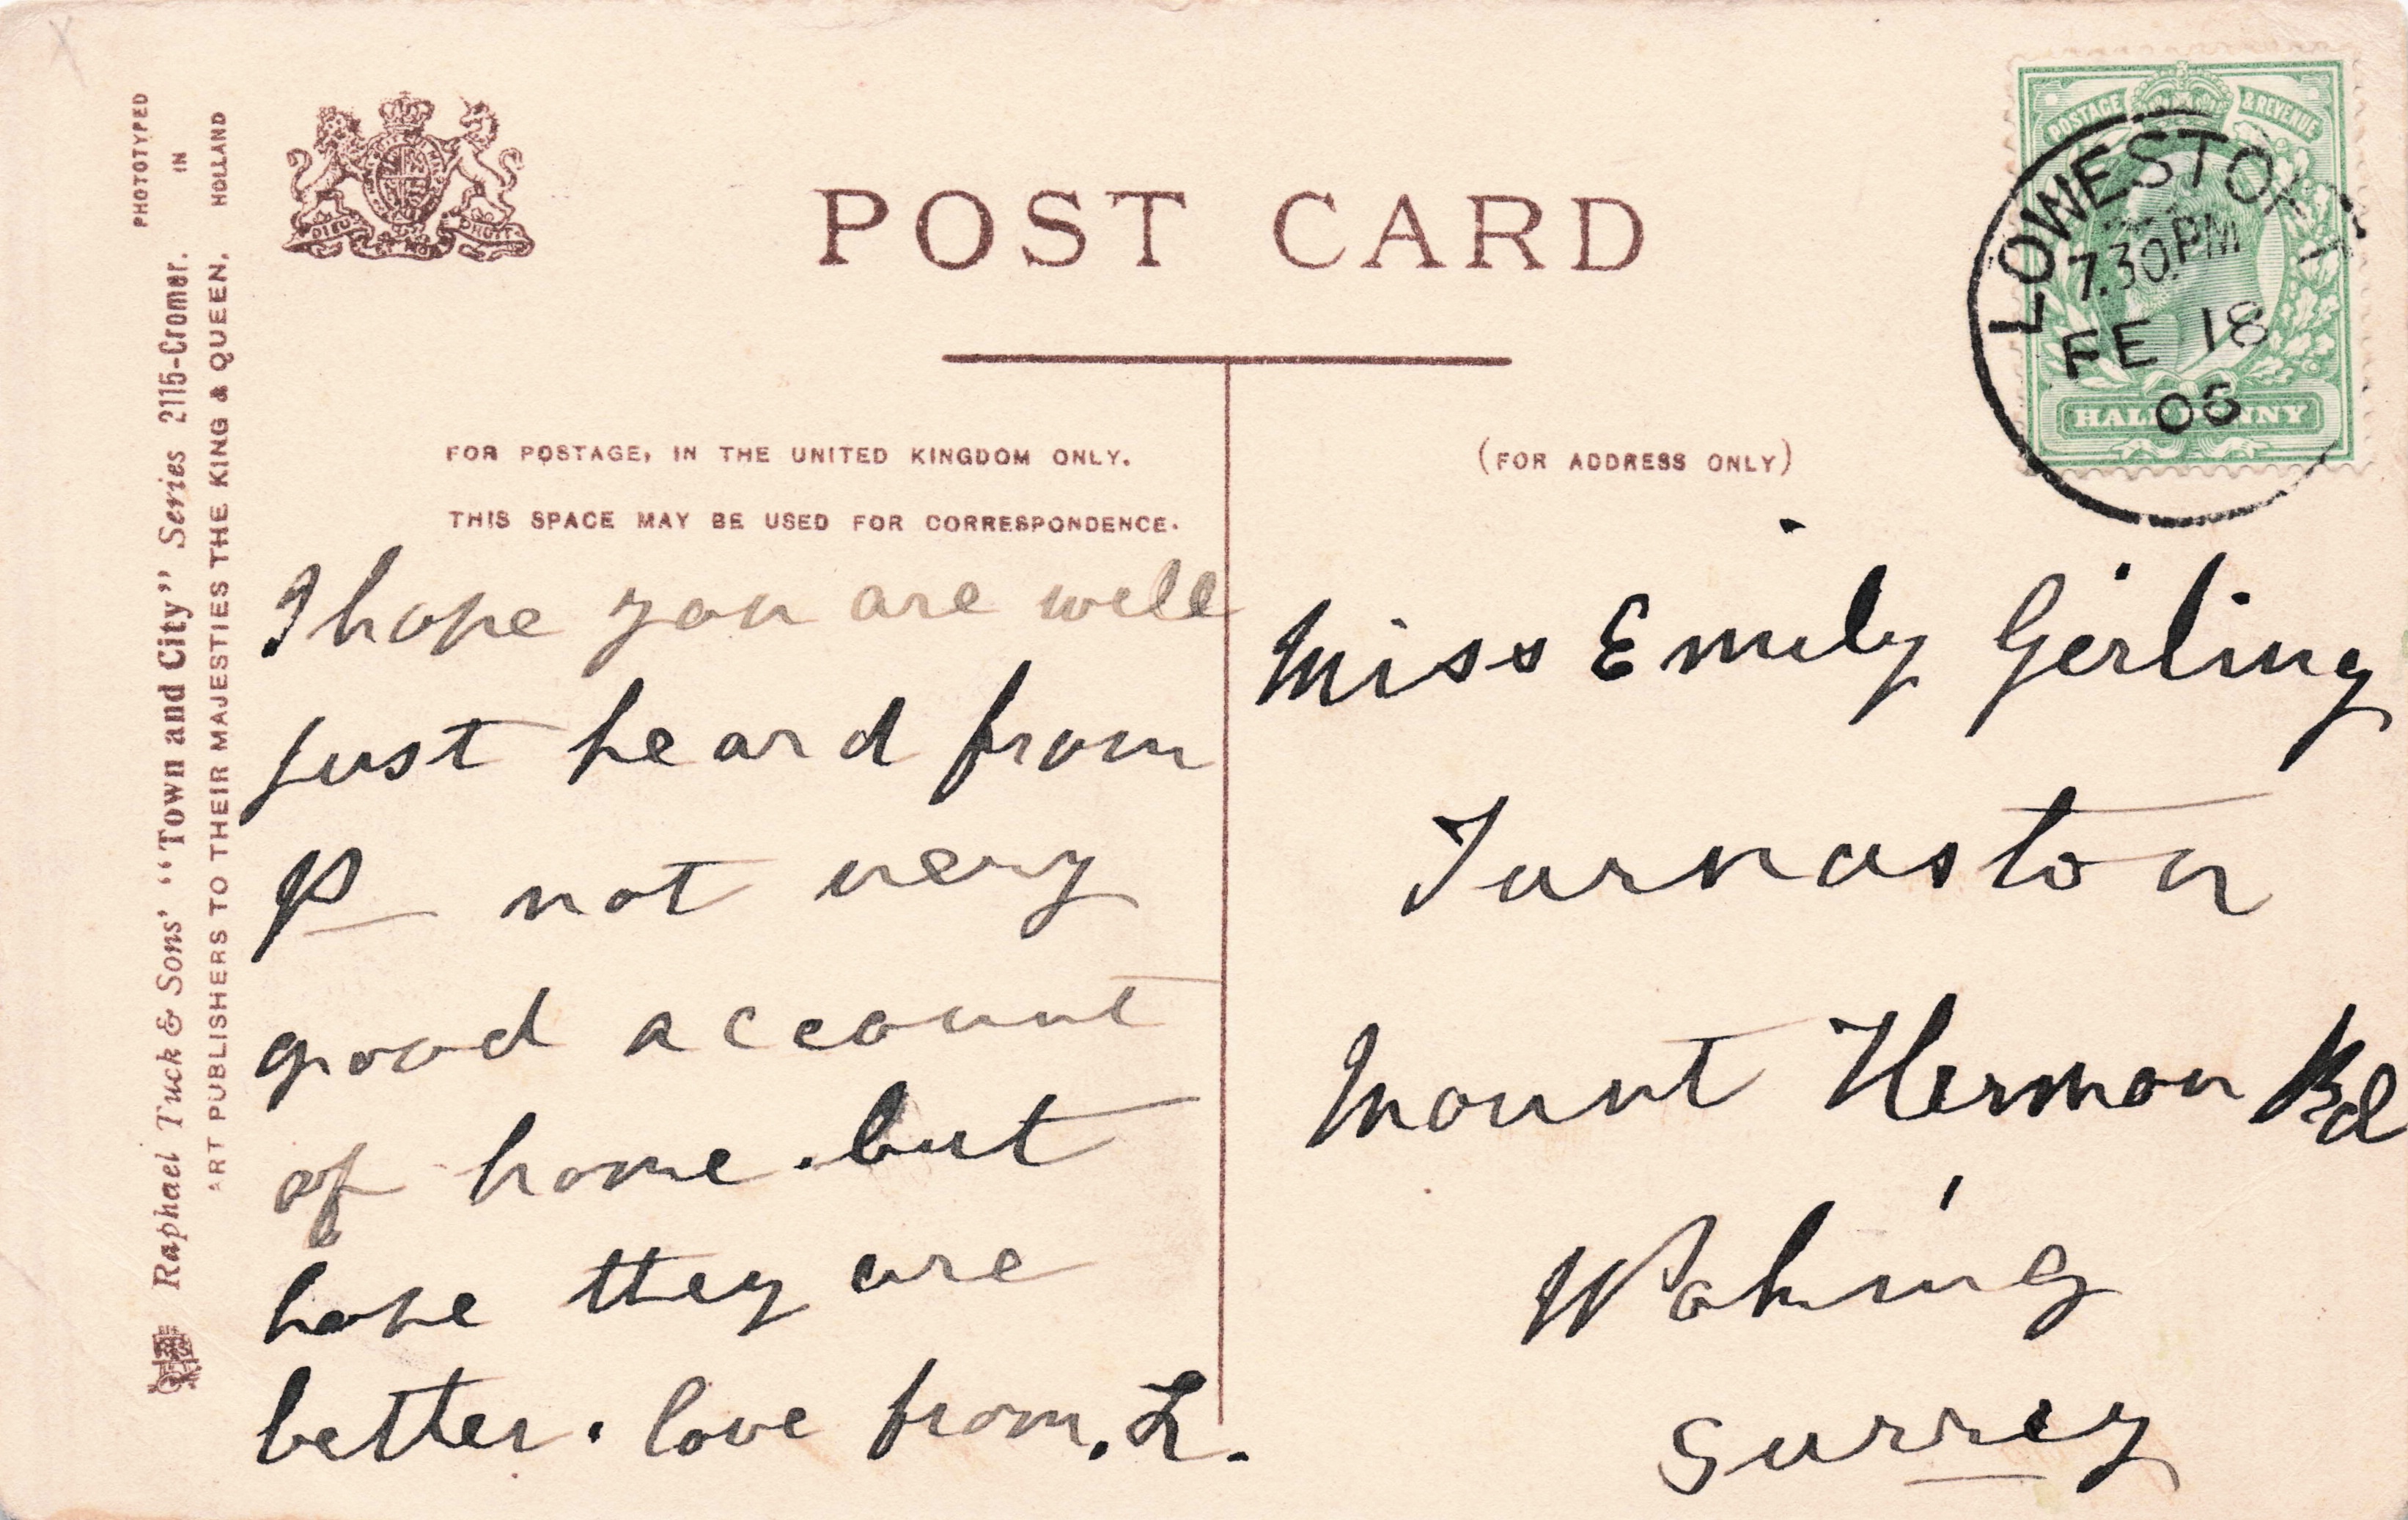 PHOTOTYPED IN HOLLAND
Raphael Tuck & Sons' "Town and City" Series 2115-Cromer.
ART PUBLISHERS TO THEIR MAJESTIES THE KING & QUEEN.
DIEU ET MON DROIT
POST CARD
FOR POSTAGE, IN THE UNITED KINGDOM ONLY.
THIS SPACE MAY BE USED FOR CORRESPONDENCE.
I hope you are well
just heard from
P not very
good account
of home. but
hope they are
better. love from. L.
(FOR ADDRESS ONLY)
POSTAGE & REVENUE
HALFPENNY
LOWESTOFT
7.30PM
FE 18
Miss Emily Girling
Turnaston
Mount Hermon Rd
Woking
Surrey